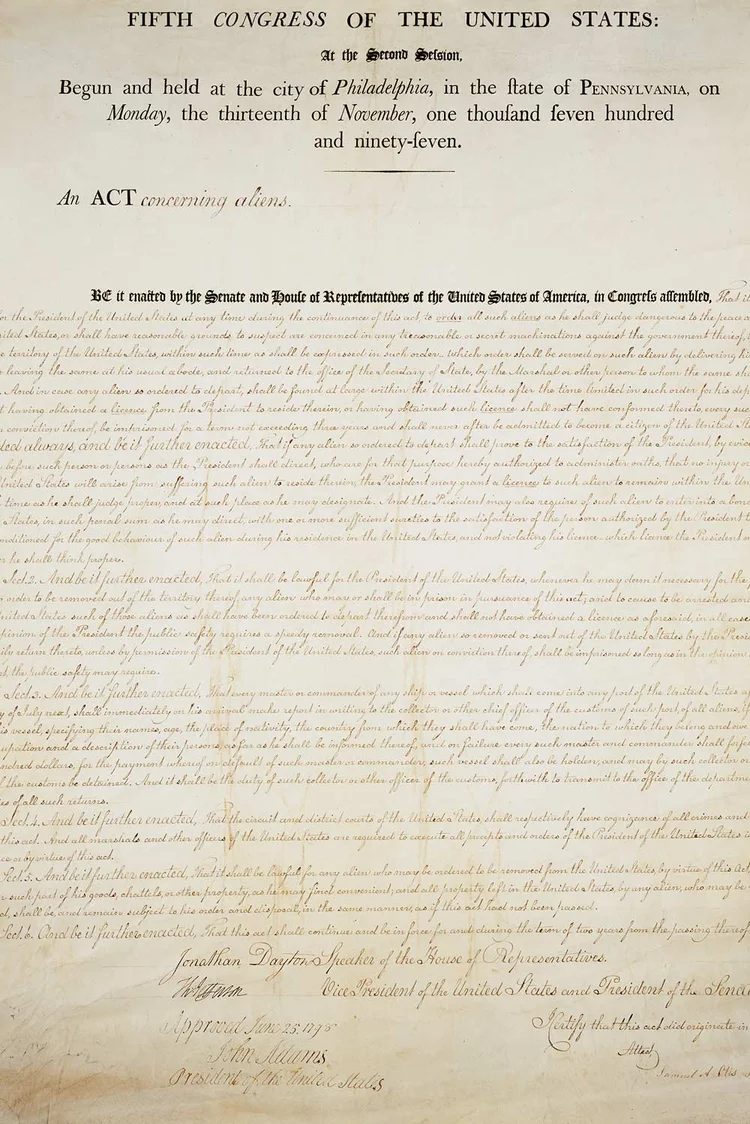 FIFTH CONGRESS OF THE UNITED STATES:
At the Second Seſſion,
Begun and held at the city of Philadelphia, in the ſtate of PENNSYLVANIA, on
Monday, the thirteenth of November, one thouſand ſeven hundred
and ninety-ſeven.
An ACT concerning aliens.
BE it enacted by the Senate and Houſe of Repreſentatives of the United States of America, in Congreſs aſſembled, That it
for the President of the United States at any time during the continuance of this act to order all such aliens as he shall judge dangerous to the peace a
ited States, or shall have reasonable grounds to suspect are concerned in any treasonable or secret machinations against the government thereof, t
e territory of the United States, within such time as shall be expressed in such order. which order shall be served on such alien by delivering hi
leaving the same at his usual abode, and returned to the office of the Secretary of State, by the Marshal or other person to whom the same sh
. And in case any alien so ordered to depart, shall be found at large within the United States after the time limited in such order for his dep
t having obtained a licence from the President to reside therein, or having obtained such licence shall not have conformed thereto, every suc
conviction thereof, be imprisoned for a term not exceeding three years and shall never after be admitted to become a citizen of the United Sta
ded always, and be it further enacted, That if any alien so ordered to depart shall prove to the satisfaction of the President, by evid
before such person or persons as the President shall direct, who are for that purpose hereby authorized to administer oaths, that no injury or
United States will arise from suffering such alien to reside therein, the President may grant a licence to such alien to remain within the Un
time as he shall judge proper, and at such place as he may designate. And the President may also require of such alien to enter into a bon
States, in such penal sum as he may direct, with one or more sufficient sureties to the satisfaction of the person authorized by the President t
onditioned for the good behaviour of such alien during his residence in the United States, and not violating his licence. which licence the President m
r he shall think proper.
Sect. 2. And be it further enacted, That it shall be lawful for the President of the United States, whenever he may deem it necessary for the
order to be removed out of the territory thereof any alien who may or shall be in prison in pursuance of this act; and to cause to be arrested an
nited States such of those aliens as shall have been ordered to depart therefrom and shall not have obtained a licence as aforesaid, in all case
opinion of the President the public safety requires a speedy removal. And if any alien so removed or sent out of the United States by the Presi
ily return thereto, unless by permission of the President of the United States, such alien on conviction thereof, shall be imprisoned so long as in the opinion
t, the public safety may require.
Sect. 3. And be it further enacted, That every master or commander of any ship or vessel which shall come into any port of the United States a
y of July next, shall immediately on his arrival make report in writing to the collector or other chief officer of the customs of such port of all aliens, if
is vessel, specifying their names, age, the place of nativity, the country from which they shall have come, the nation to which they belong and owe
upation and a description of their persons, as far as he shall be informed thereof, and on failure every such master and commander shall forfe
ndred dollars, for the payment whereof on default of such master or commander, such vessel shall also be holden, and may by such collector or
f the customs be detained. And it shall be the duty of such collector or other officer of the customs, forthwith to transmit to the office of the departme
es of all such returns.
Sect. 4. And be it further enacted, That the circuit and district courts of the United States, shall respectively have cognizance of all crimes and
this act. And all marshals and other officers of the United States are required to execute all precepts and orders of the President of the United States i
ce or by virtue of this act.
Sect. 5. And be it further enacted, That it shall be lawful for any alien who may be ordered to be removed from the United States, by virtue of this Act,
such part of his goods, chattels, or other property, as he may find convenient; and all property left in the United States, by any alien, who may be
d, shall be, and remain subject to his order and disposal, in the same manner, as if this act had not been passed.
Sect. 6. And be it further enacted, That this act shall continue and be in force for and during the term of two years from the passing thereof
Jonathan Dayton Speaker of the House of Representatives.
Th: Jefferson Vice President of the United States and President of the Sena
Approved June 25. 1798 I Certify that this act did originate in
John Adams Attest
President of the United States Samuel A. Otis